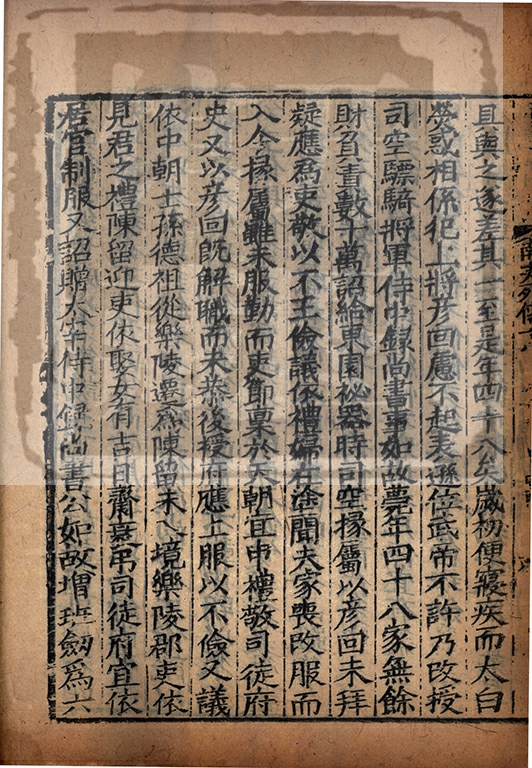 且與之遂差其一至是年四十八矣歲初便寢疾而太白
熒惑相係犯上將彥回慮不起表遜位武帝不許乃改授
司空驃騎將軍侍中錄尚書事如故薨年四十八家無餘
財負責數十萬詔給東園秘器時司空掾屬以彥回未拜
疑應爲吏敬以不王儉議依禮婦在塗聞夫家喪改服而
入今掾屬雖未服勤而吏節稟於天朝宜申禮敬司徒府
史又以彥回旣解職而未恭後授府應上服以不儉又議
依中朝士孫德祖從樂陵遷爲陳留未入境樂陵郡吏依
見君之禮陳留迎吏依娶女有吉日齋衰弔司徒府宜依
居官制服又詔贈太宰侍中錄尚書公如故增班劒爲六